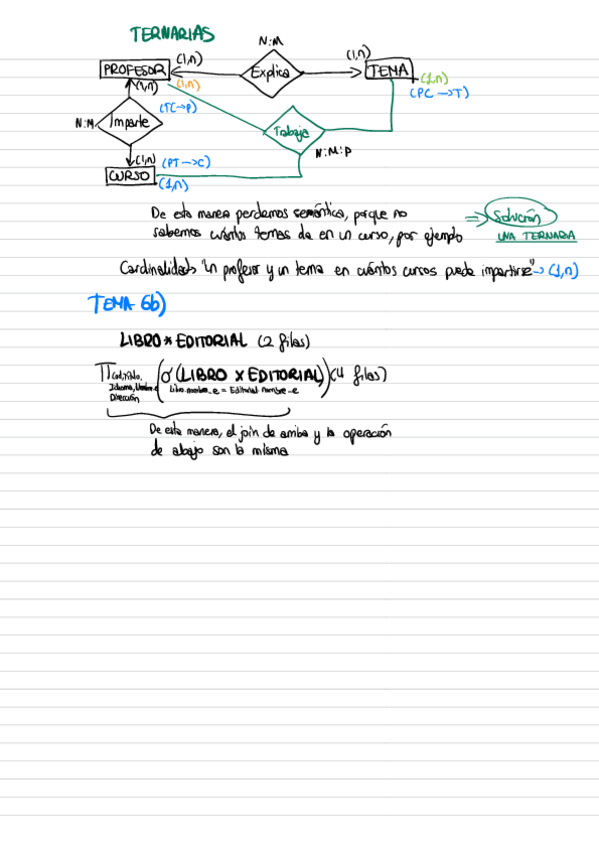 TERNARIAS
N:M
(1,n) (1,n)
PROFESOR Explica TEMA
(1,n) (1,n) (1,n)
(PC→T)
(TC→P)
N:M Imparte Trabaja
N:M:P
(1,n) (PT→C)
CURSO (1,n)
De esta manera perdemos semántica, porque no ⇒ Solución
sabemos cuántos temas da en un curso, por ejemplo UNA TERNARIA
Cardinalidad→ "Un profesor y un tema en cuántos cursos puede impartirse" → (1,n)
TEMA 6b)
LIBRO * EDITORIAL (2 filas)
Π (σ (LIBRO X EDITORIAL)) (4 filas)
Idioma, Nombre_e Libro.nombre_e = Editorial.nombre_e
Dirección
De esta manera, el join de arriba y la operación
de abajo son la misma